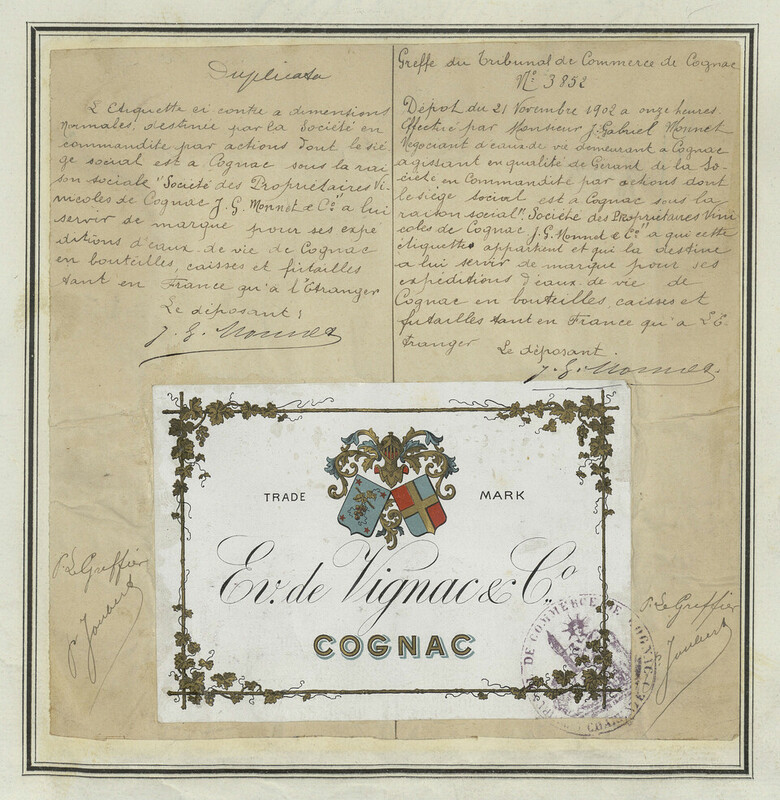 Duplicata
L'Etiquette ci contre a dimensions
normales, destinée par la Société en
commandite par actions dont le siè-
ge social est a Cognac sous la rai
son sociale "Société des Propriétaires Vi-
nicoles de Cognac J. G. Monnet & Co" a lui
servir de marque pour ses expé
ditions d'eaux-de-vie de Cognac
en bouteilles, caisses et futailles
tant en France qu'à l'Etranger
Le déposant;
J. G. Monnet
Greffe du Tribunal de Commerce de Cognac
No 3852
Dépot du 21 Novembre 1902 a onze heures.
Effectué par Monsieur J. Gabriel Monnet
Négociant d'eaux de vie demeurant a Cognac
agissant en qualité de Gérant de la So-
ciété en Commandite par actions dont
le siège social est a Cognac sous la
raison social "Société des Propriétaires Vini
coles de Cognac J. G. Monnet & Co" a qui cette
étiquette appartient et qui la destine
a lui servir de marque pour ses
expéditions d'eaux de vie de
Cognac en bouteilles, caisses et
futailles tant en France qu'a L'E-
tranger
Le déposant.
J. G. Monnet
TRADE MARK
Ev. de Vignac & Co.
COGNAC
P. Le Greffier
P. Joubert
P. Le Greffier
Joubert
DE COMMERCE DE COGNAC